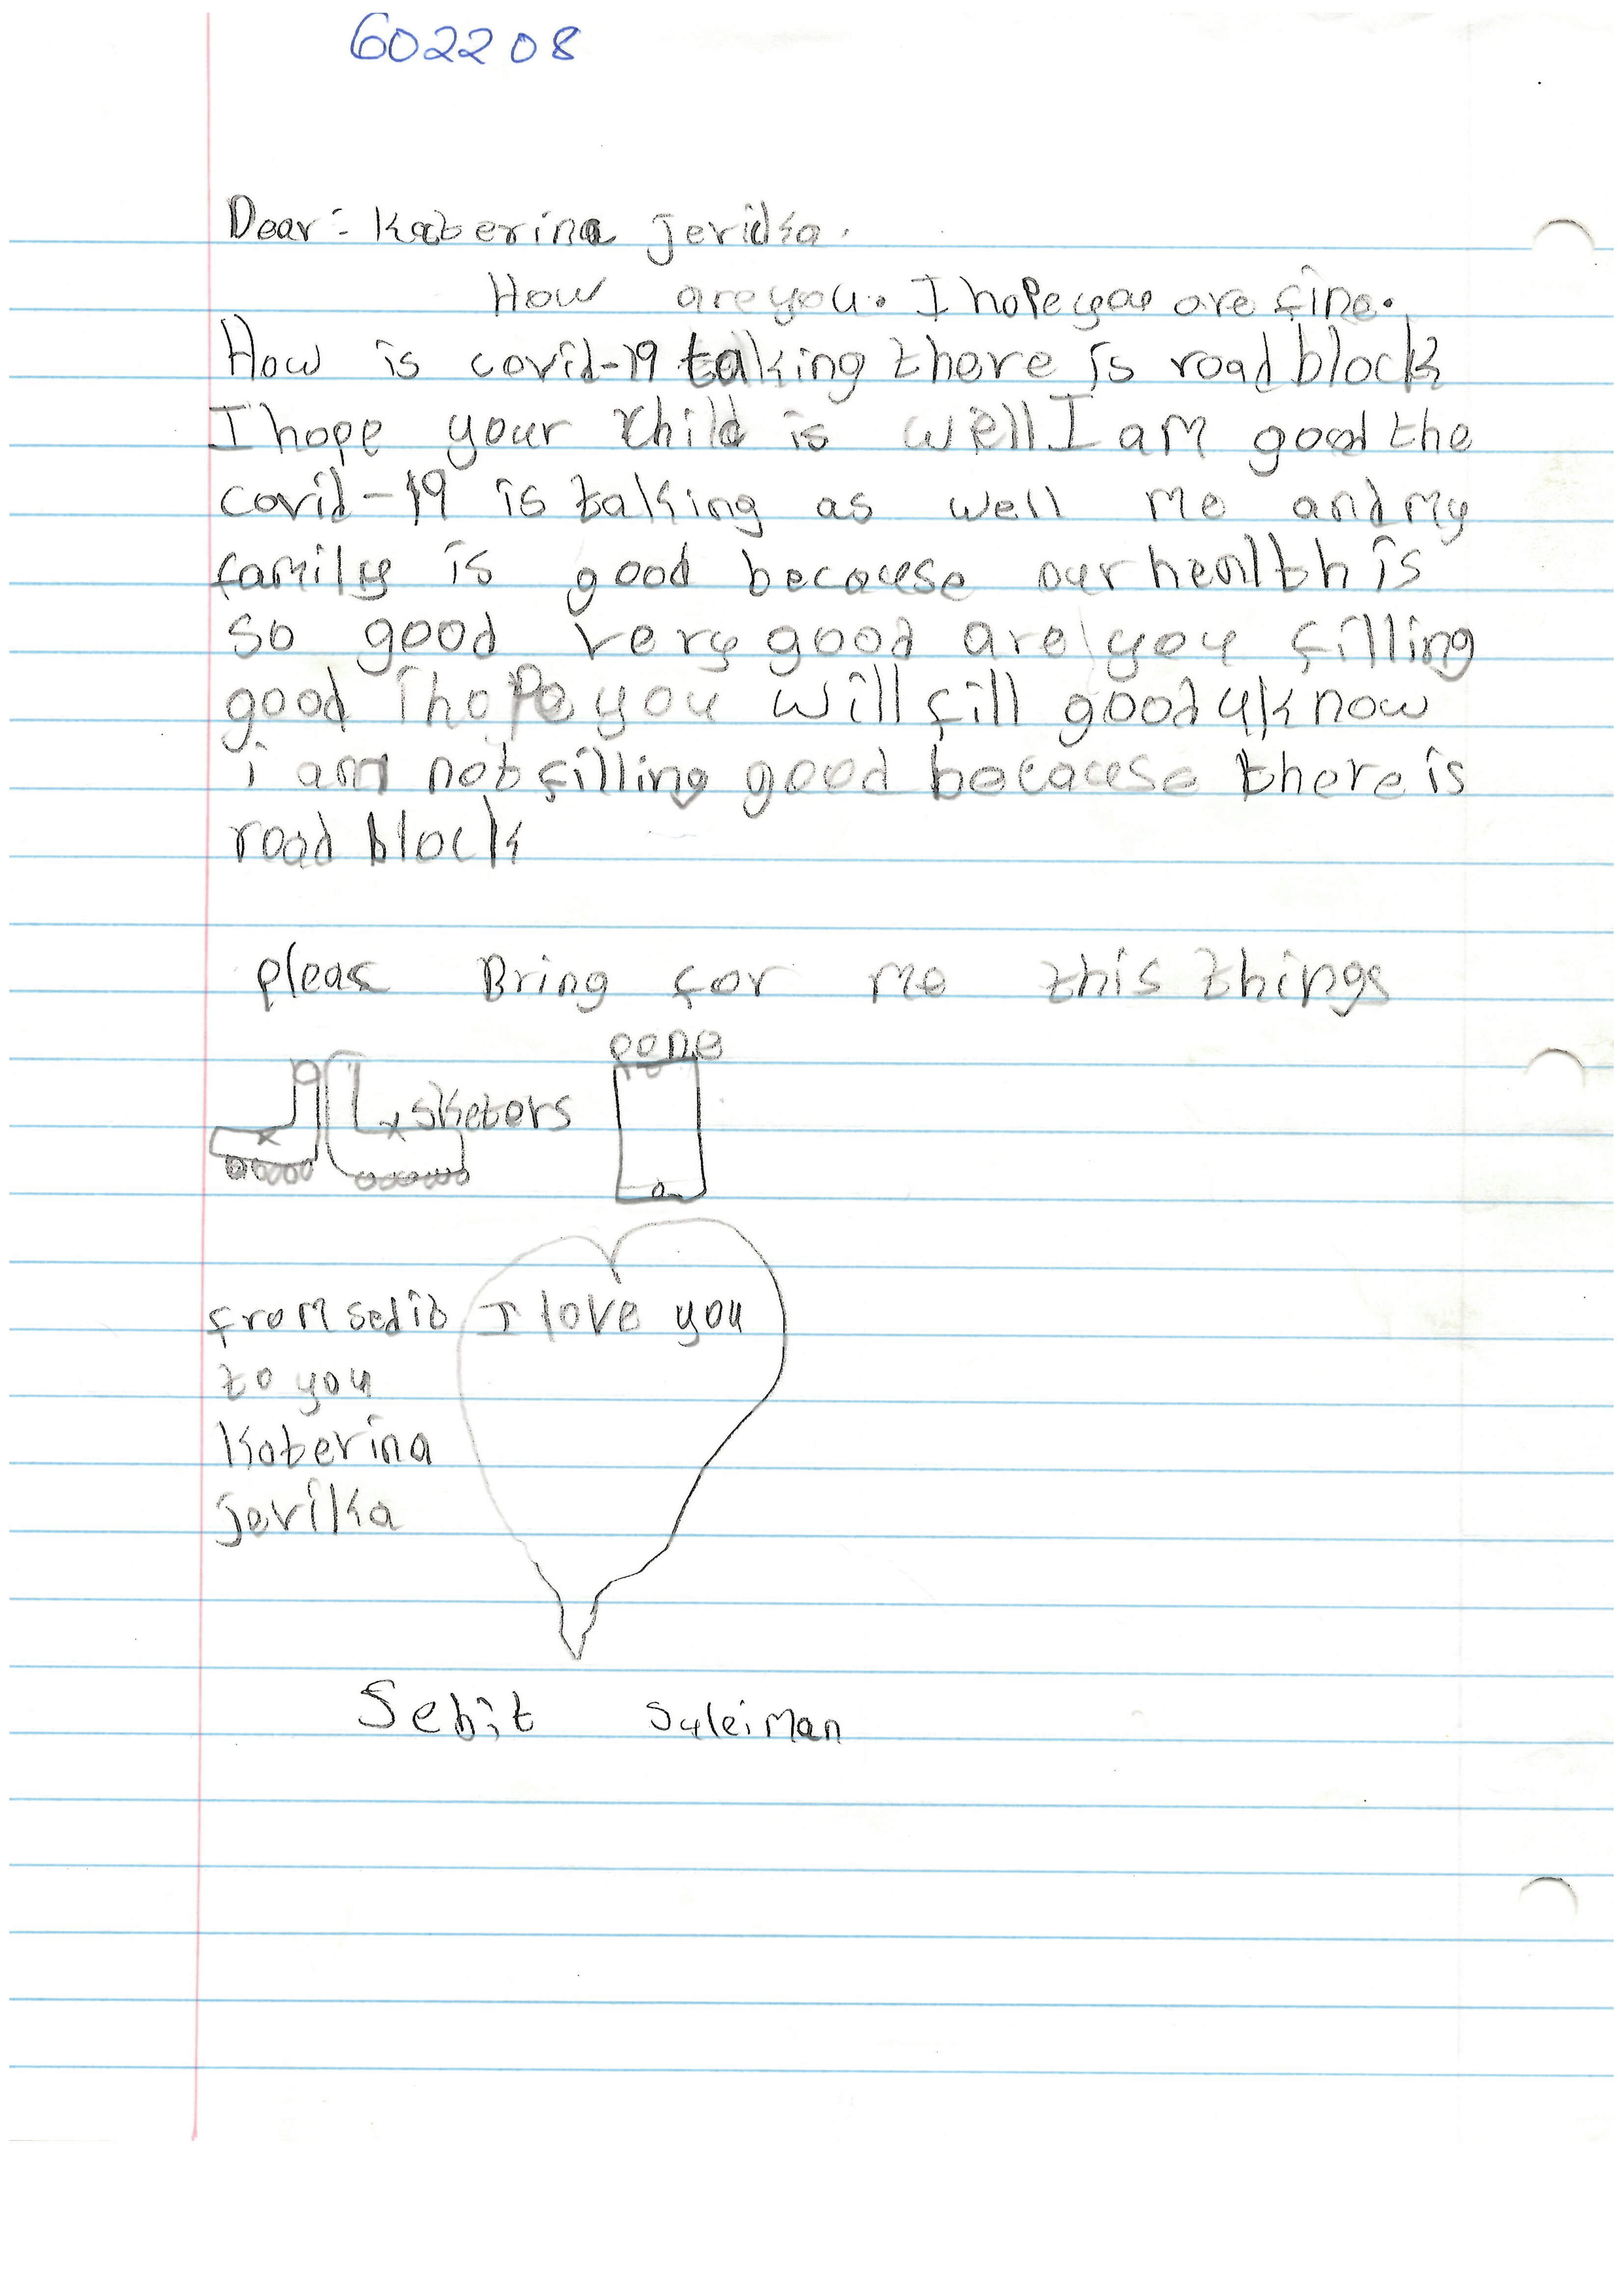 602208
Dear: Katerina jeridka.
How are you. I hope you are fine.
How is covid-19 taking there is road block
I hope your child is well I am good the
covid-19 is taking as well me and my
family is good because our health is
so good very good are you filling
good I hope you will fill good u know
i am not filling good because there is
road block
pleas Bring for me this things
fone
sketers
from sedit I love you
to you
Katerina
jerika
Sebit Suleiman